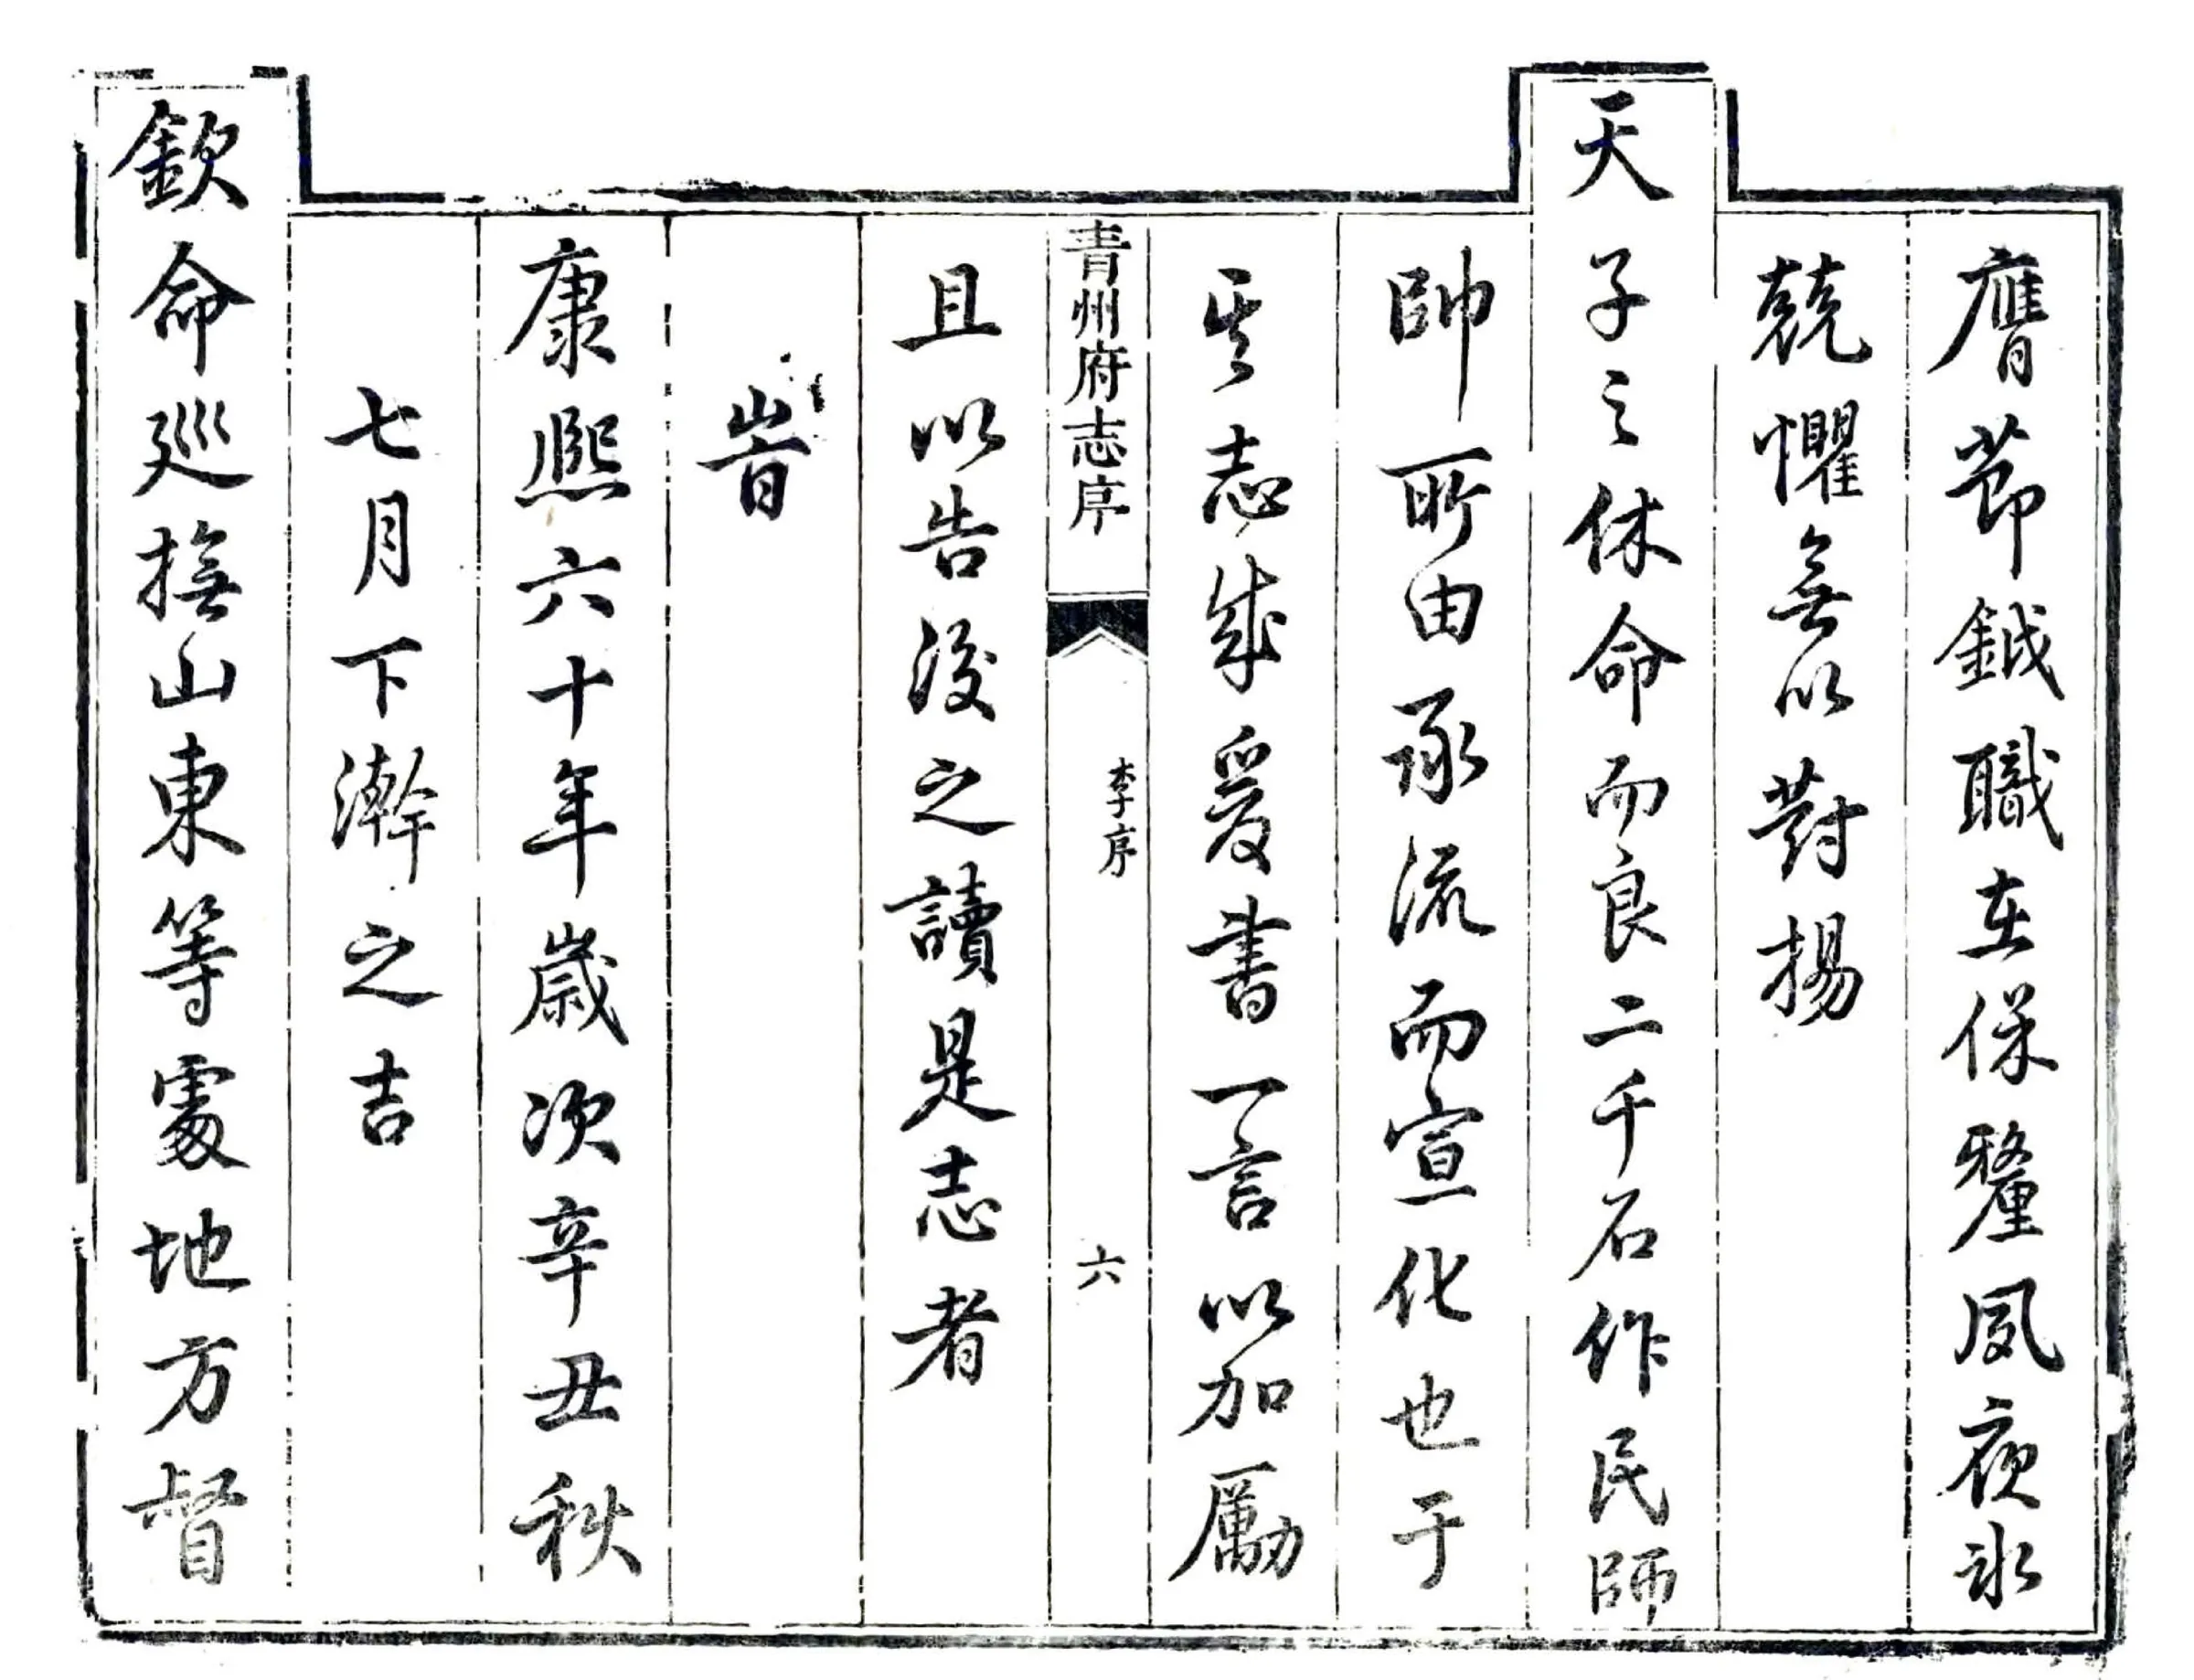 膺節鉞職在保釐夙夜冰
兢懼無以對揚
天子之休命而良二千石作民師
帥所由承流而宣化也于
其志成爰書一言以加勵
青州府志序
李序
六
且以告後之讀是志者
旹
康熙六十年歲次辛丑秋
七月下澣之吉
欽命巡撫山東等處地方督